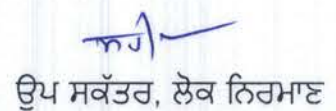 ਉਪ ਸਕੱਤਰ, ਲੋਕ ਨਿਰਮਾਣ